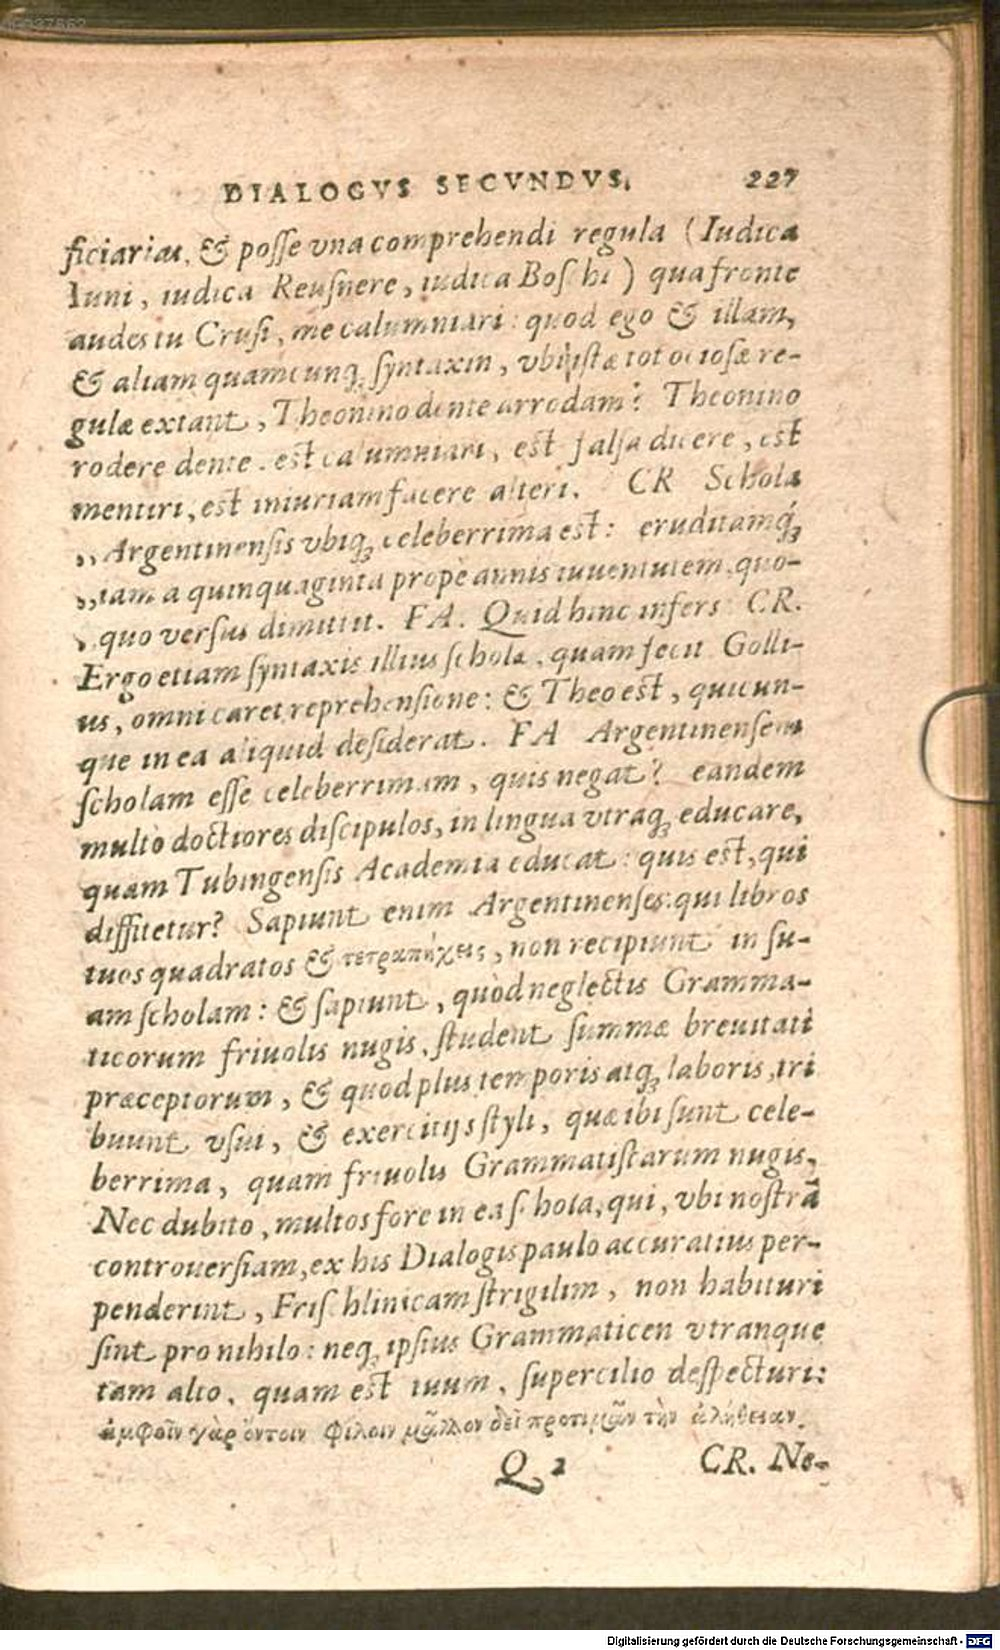 DIALOGVS SECVNDVS. 227
ficiariæ, & posse vna comprehendi regula (Iudica
Iuni, iudica Reusnere, iudica Boschi) qua fronte
audes tu Crusi, me calumniari: quod ego & illam,
& aliam quamcunq; syntaxin, vbi istæ tot otiosæ re-
gulæ extant, Theonino dente arrodam? Theonino
rodere dente, est calumniari, est falsa dicere, est
mentiri, est iniuriam facere alteri. CR Schola
,, Argentinensis vbiq; celeberrima est: eruditamq́;
,, iam a quinquaginta propè annis iuuentutem, quo-
,, quo versus dimittit. FA. Quid hinc infers CR.
Ergo etiam syntaxis illius scholæ, quam fecit Golli-
us, omni caret reprehensione: & Theo est, quicun-
que in ea aliquid desiderat. FA Argentinensem
scholam esse celeberrimam, quis negat? eandem
multò doctiores discipulos, in lingua vtraq; educare,
quam Tubingensis Academia educat: quis est, qui
diffitetur? Sapiunt enim Argentinenses: qui libros
tuos quadratos & τετραπήχεις, non recipiunt in su-
am scholam: & sapiunt, quòd neglectis Gramma-
ticorum friuolis nugis, student summæ breuitati
præceptorum, & quod plus temporis atq; laboris, tri
buunt vsui, & exercitijs styli, quæ ibi sunt cele-
berrima, quam friuolis Grammatistarum nugis.
Nec dubito, multos fore in ea schola, qui, vbi nostrā
controuersiam, ex his Dialogis paulo accuratius per-
penderint, Frischlinicam strigilim, non habituri
sint pro nihilo: neq; ipsius Grammaticen vtranque
tam alto, quam est tuum, supercilio despecturi:
ἀμφοῖν γὰρ ὄντοιν φίλοιν μᾶλλον δεῖ προτιμᾶν τὴν ἀλήθειαν.
Q 2 CR. Ne-
Digitalisierung gefördert durch die Deutsche Forschungsgemeinschaft - DFG